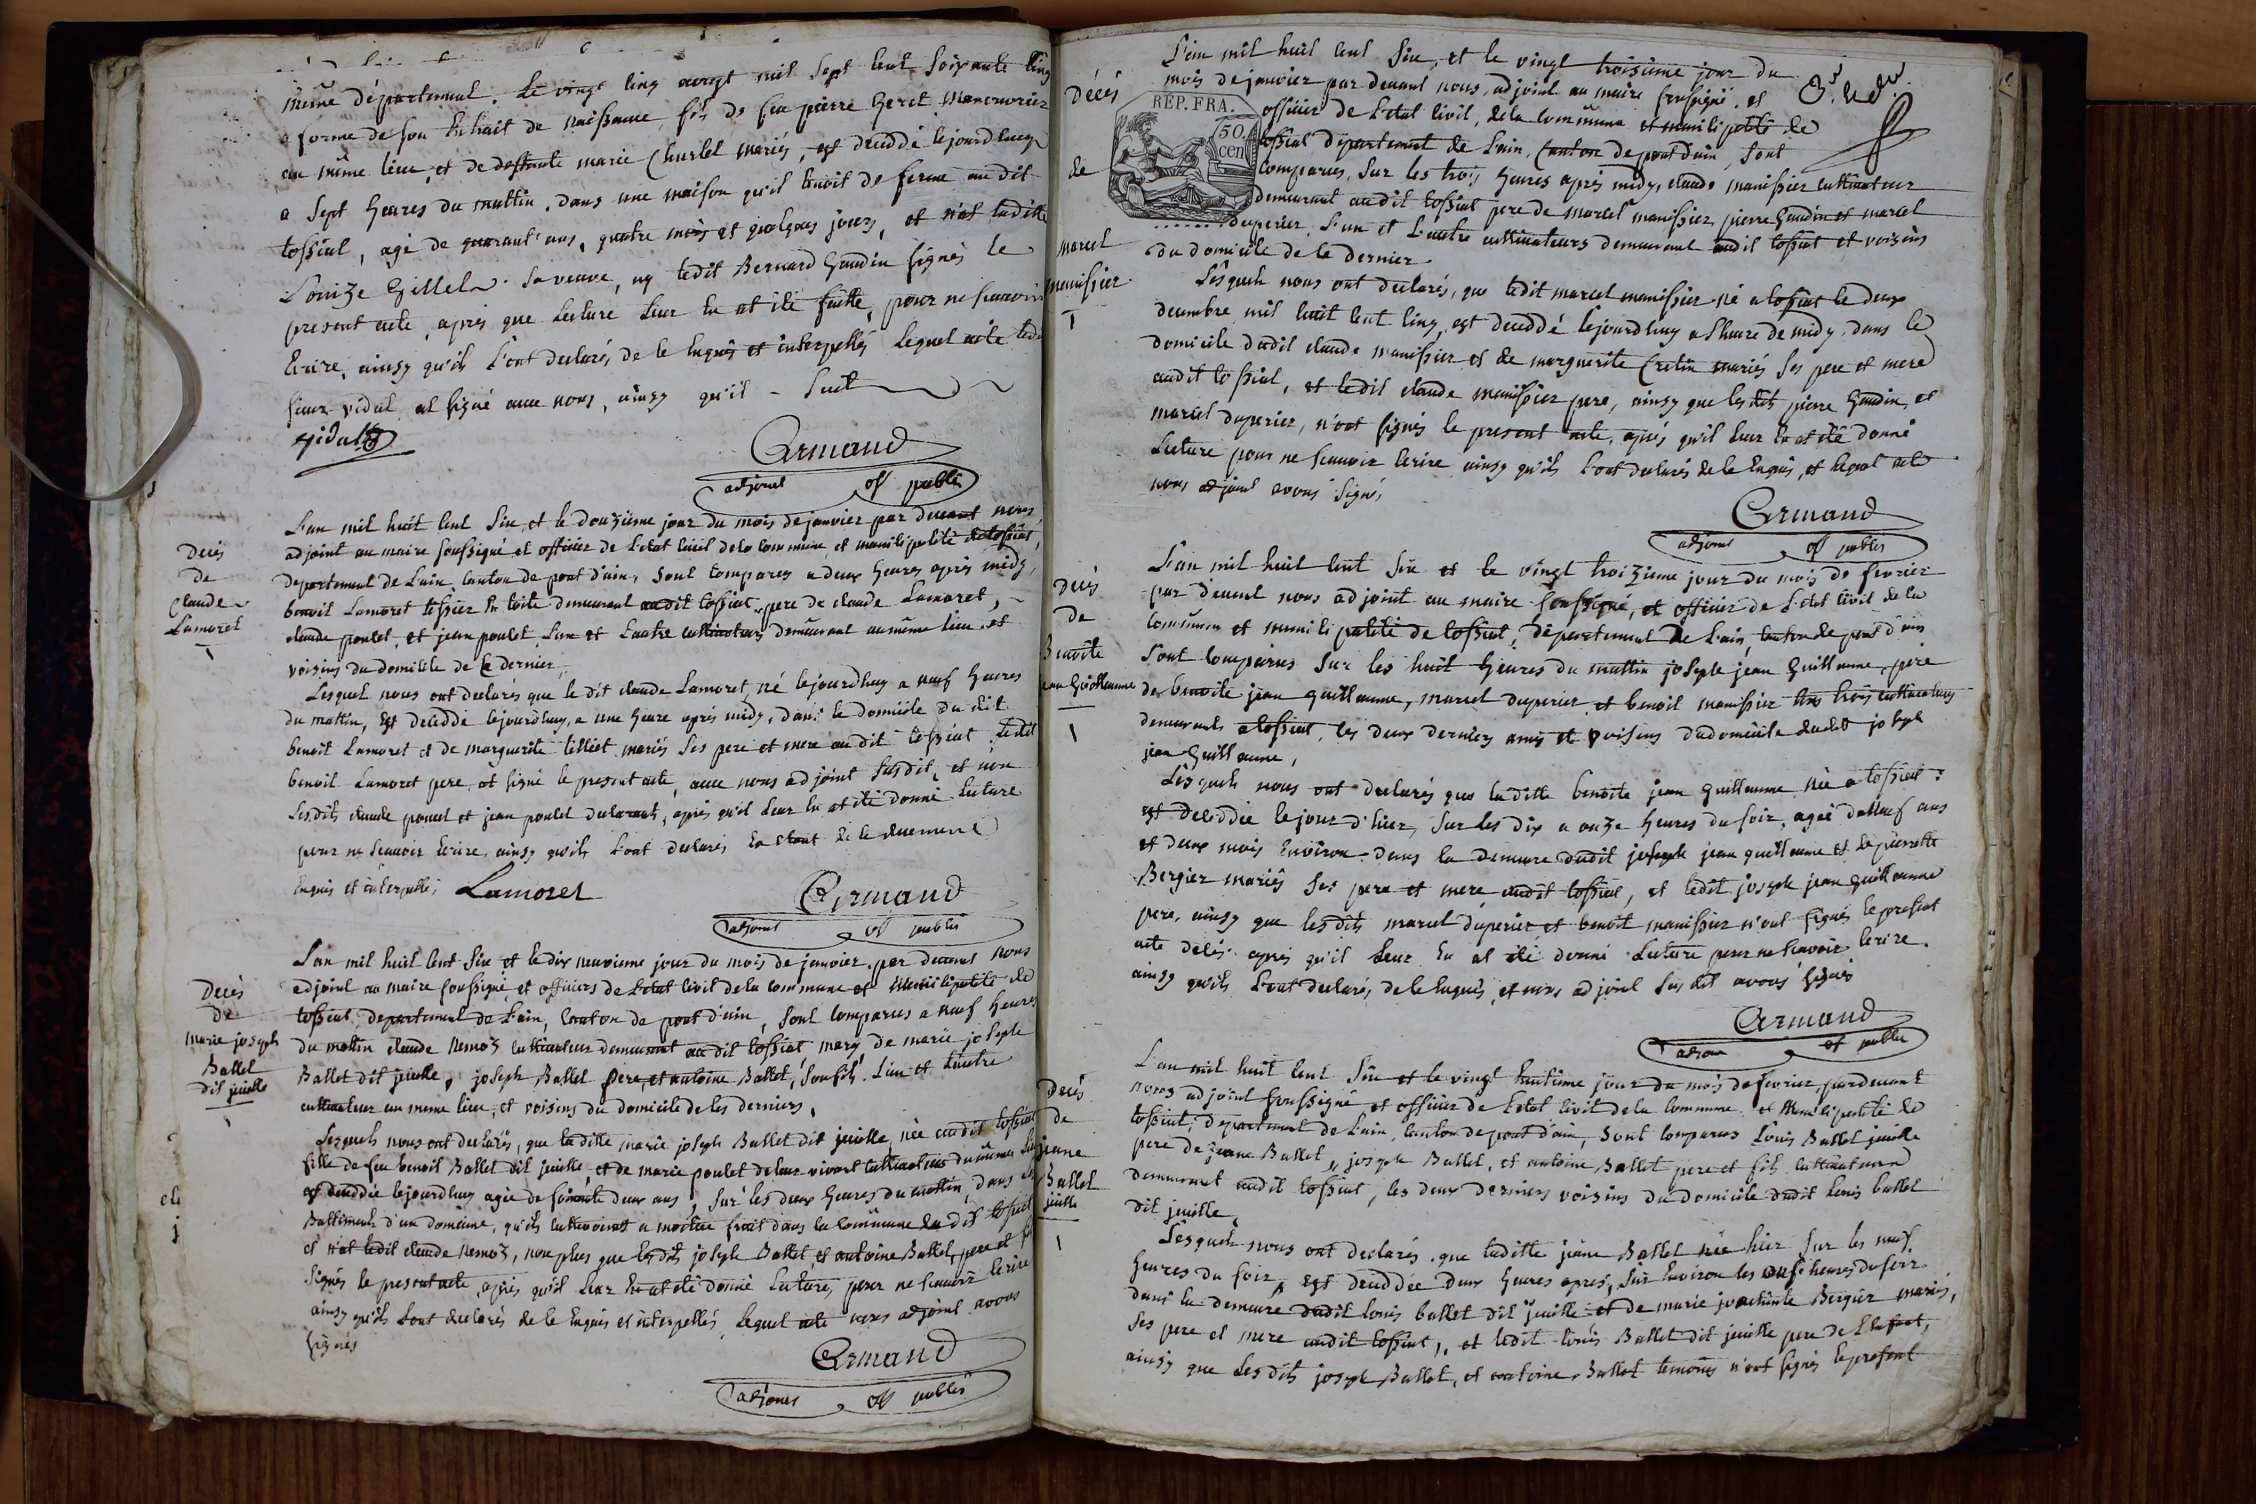 même département. Le vingt cinq avrgt mil sept cent soixante cinq
a forme de son Extrait de naissance, fils de feu pierre Geret manouvrier
au même lieu, et de deffunte marie Churlet mariés, est deceddé lejourdhuy
a sept heures du mattin. dans une maison qu'il tenoit de ferme au dit
tossiat, agé de quarant'ans, quatre mois et quelques jours, et n'at laditte
Louize Gillet sa veuve, ny ledit Bernard Gaudin signés le
present acte, apres que lecture leur En at été faitte, pour ne scauoir
Ecrire, ainsy qu'ils l'ont declarés, de ce Enquis et interpellés Lequel acte ledi
sieur vidal, at signé auec nous, ainsy qu'il - suit
vidal
Armand
adjoint off public
Décés
de
Claude
Lamoret
1
L'an mil huit cent six, et le douzième jour du mois de janvier par deuant nous
adjoint au maire soussigné et officier de l'etat civil de la commune et municipalité de tossiat,
departement de L'ain, canton de pont d'ain, sont comparus a deux heures aprés midy,
benoit Lamoret tessier En toile demeurant audit tossiat, pere de claude Lamoret,
claude poulet, et jean poulet l'un et l'autre cultivateurs demeurant au même lieu et
voisins du domicile de ce dernier.
Lesquels nous ont declarés que le dit claude Lamoret, né lejourdhuy a neuf heures
du mattin, Est deceddé lejourdhuy, a une heure aprés midy, dans le domicile du dit
benoit Lamoret et de marguerite tilliet mariés ses pere et mere au dit tossiat, ledit
benoit Lamoret pere, at signé le present acte, auec nous adjoint susdit, et non
lesdits claude poulet et jean poulet declarants, aprés qu'il leur En at été donné lecture
pour ne scauoir Ecrire, ainsy qu'ils l'ont declarés En etant de ce duement
Enquis et interpellés Lamoret
Armand
adjoint off public
Decés
de
marie joseph
Ballet
dit juielle
1
L'an mil huit cent six et le dix neuvieme jour du mois de janvier, par deuant nous
adjoint au maire soussigné et officiers de l'etat civil de la commune et municipalité de
tossiat, departement de L'ain, canton de pont d'ain, sont comparus a neuf heures
du mattin claude Nemoz cultivateur demeurant au dit tossiat mary de marie josepte
Ballet dit juielle, joseph Ballet pere, et antoine Ballet, son fils l'un et l'autre
cultivateur au meme lieu, et voisins du domicile de ces derniers.
Lesquels nous ont declarés, que la ditte marie joseph Ballet dit juielle, née audit tossiat
fille de feu benoit Ballet dit juielle et de marie poulet de leur vivant cultivateurs du même lieu
est deceddée lejourdhuy agée de soixante deux ans, sur les deux heures du mattin, dans les
Battiments d'un domaine, qu'ils cultivoient a moitier fruit dans la commune du dit tossiat
et n'at ledit claude Nemoz, non plus que lesdits joseph Ballet, et antoine Ballet, pere et fils
signés le present acte, aprés qu'il leur En at été donné lecture, pour ne scauoir Ecrire
ainsy qu'ils l'ont declarés de ce Enquis et interpellés, lequel acte nous adjoint avons
signés
Armand
adjoint off public
Décés
de
marcel
manissier
1
L'an mil huit cent six, et le vingt troisième jour du
mois de janvier par deuant nous, adjoint au maire soussigné, et
officier de l'etat civil, de la commune et municipalité de
tossiat departement de L'ain, canton de pont d'ain, sont
REP. FRA.
50.
cen
comparus, sur les trois heures aprés midy, claude manissier cultivateur
demeurant audit tossiat pere de marcel manissier, pierre Gaudin et marcel
duperier, l'un et l'autre cultivateurs demeurant audit tossiat et voisins
du domicile de ce dernier.
Lesquels nous ont declarés, que ledit marcel manissier né a tossiat le deux
decembre mil huit cent cinq, est deceddé lejourdhuy a l'heure de midy dans le
domicile dudit claude manissier et de marguerite Cretin mariés ses pere et mere
audit tossiat, et ledit claude manissier pere, ainsy que les dits pierre Gaudin, et
marcel duperier, n'ont signés le present acte, aprés qu'il leur En at été donné
Lecture pour ne scauoir Ecrire ainsy qu'ils l'ont declarés de ce Enquis, et lequel acte
nous adjoint avons signé,
Armand
adjoint off public
Décés
de
Benoîte
jean Guillaume
1
L'an mil huit cent six et le vingt troizieme jour du mois de fevrier
par deuant nous adjoint au maire soussigné, et officier de l'etat civil de la
commune et municipalité de tossiat, département de L'ain, canton de pont d'ain
sont comparus sur les huit heures du mattin josepte jean Guillaume, pere
de benoite jean guillaume, marcel duperier et benoit manissier tous trois cultivateurs
demeurants a tossiat, les deux derniers amis et voisins du domicile dudit joseph
jean Guillaume,
Lesquels nous ont declarés que laditte benoite jean Guillaume née a tossiat
est deceddée le jour d'hier, sur les dix a onze heures du soir, agée de neuf ans
et deux mois Environ dans la demeure dudit joseph jean guillaume et de pierrette
Bergier mariés ses pere et mere audit tossiat, et ledit joseph jean guillaume
pere, ainsy que lesdits marcel duperier et benoit manissier n'ont signés le present
acte decés. aprés qu'il leur En at été donné lecture pour ne scavoir Ecrire.
ainsy qu'ils l'ont declarés, de ce Enquis, et nous adjoint sus dit avons signés
Armand
adjoint off public
Decés
de
jeane
Ballet
juielle
1
L'an mil huit cent six et le vingt huitième jour du mois de fevrier, pardeuant
nous adjoint soussigné et officier de l'etat civil de la commune et Municipalité de
tossiat, département de L'ain, canton de pont d'ain, sont comparus Louis Ballet juielle
pere de jeane Ballet, joseph Ballet, et antoine Ballet pere et fils cultivateurs
demeurant audit tossiat, les deux derniers voisins du domicile dudit Louis ballet
dit juielle,
Lesquels nous ont declarés que laditte jeane Ballet née hier sur les neuf
heures du soir, est deceddée deux heures apres, sur Environ les onse heures du soir
dans la demeure dudit louis ballet dit juielle et de marie joachinte Bergier mariés,
ses pere et mere audit tossiat, et ledit louis Ballet dit juielle pere de L'enfant,
ainsy que lesdits joseph Ballet, et antoine Ballet temoins n'ont signés le present